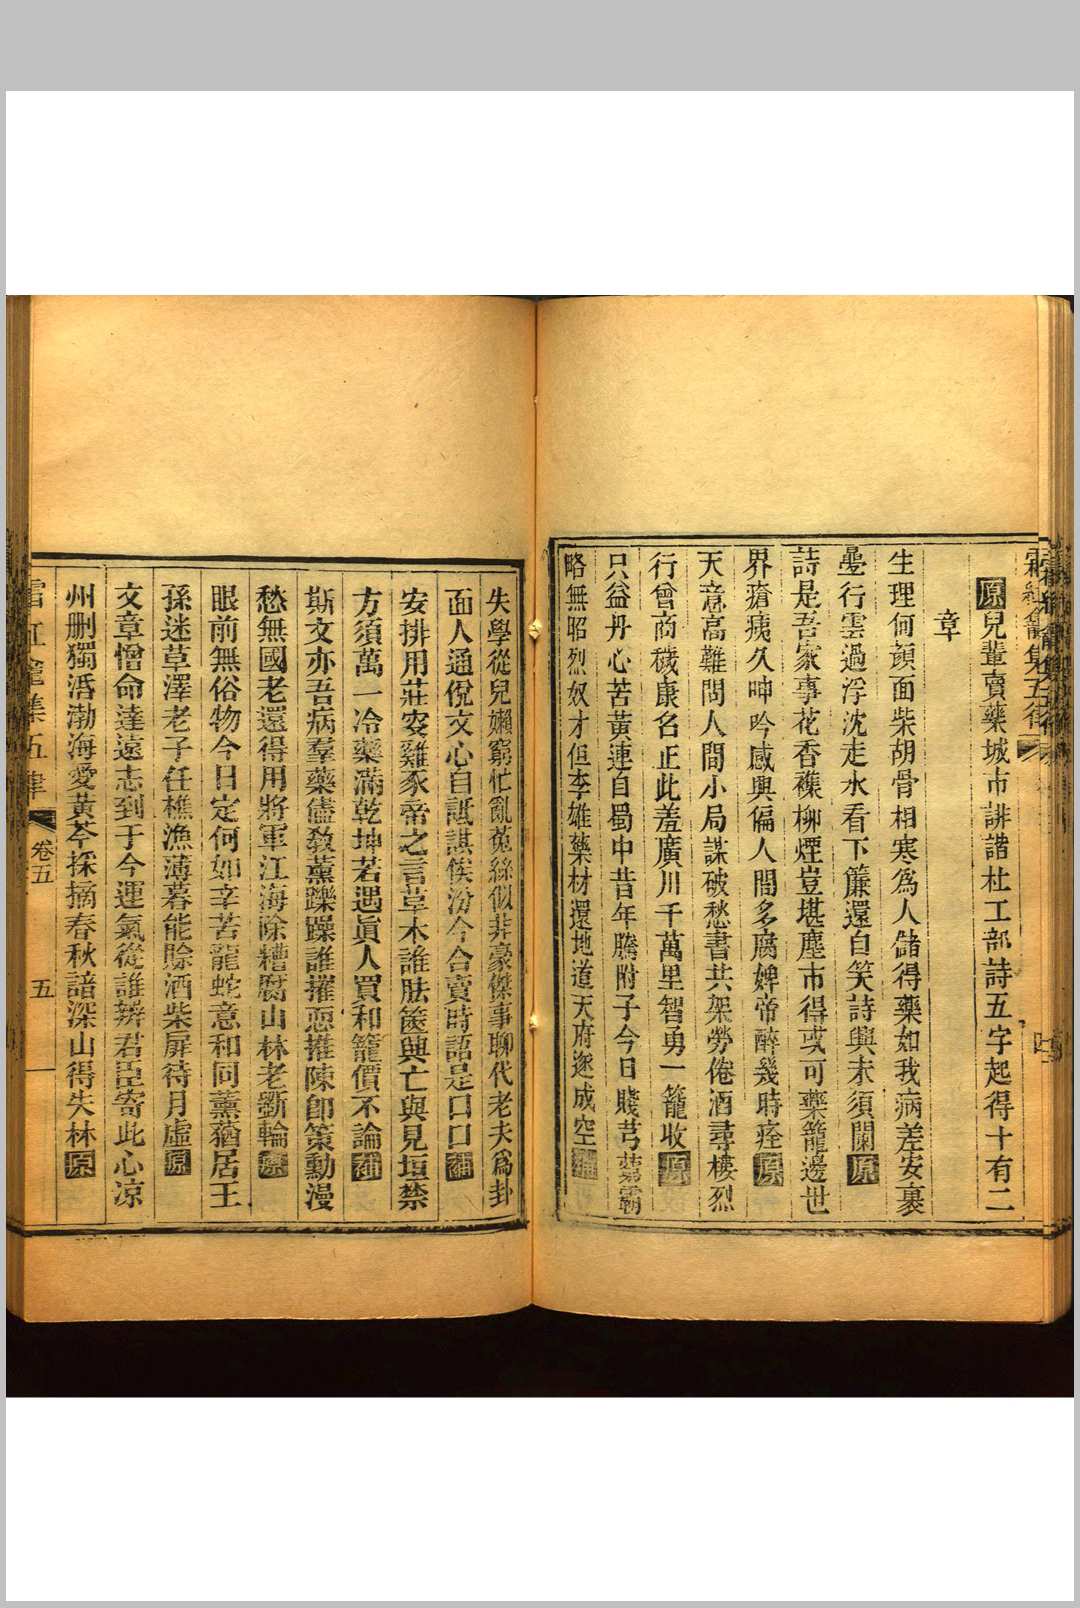 原兒輩賣藥城市誹諧杜工部詩五字起得十有二
章
生理何顏面柴胡骨相寒爲人儲得藥如我病差安裹
疊行雲過浮沈走水看下簾還自笑詩興未須闌原
詩是吾家事花香襍柳煙豈堪塵市得或可藥籠邊世
界瘡痍久呻吟感興偏人間多腐婢帝醉幾時痊原
天意高難問人間小局謀破愁書共架勞倦酒尋樓烈
行曾商穢康名正此羞廣川千萬里智勇一籠收原
只益丹心苦黃連自蜀中昔年騰附子今日賤芎藭霸
略無昭烈奴才但李雄藥材還地道天府遂成空補
失學從兒懶窮忙亂菟絲似非豪傑事聊代老夫爲卦
面人通倪文心自詆諆候汾今合賣時語是口口補
安排用莊叜雞豕帝之言草木誰胠篋興亡與見垣禁
方須萬一冷藥滿乾坤若遇眞人買和籠價不論補
斯文亦吾病羣藥儘敎薰躒躁誰摧惡推陳卽策勳漫
愁無國老還得用將軍江海除糟腐山林老斲輪原
眼前無俗物今日定何如辛苦龍蛇意和同薰蕕居王
孫迷草澤老子任樵漁薄暮能賒酒柴屏待月虛原
文章憎命達遠志到于今運氣從誰辨君臣寄此心凉
州刪獨活渤海愛黃芩採摘春秋諳深山得失林原
霜紅龕集五律 卷五 五